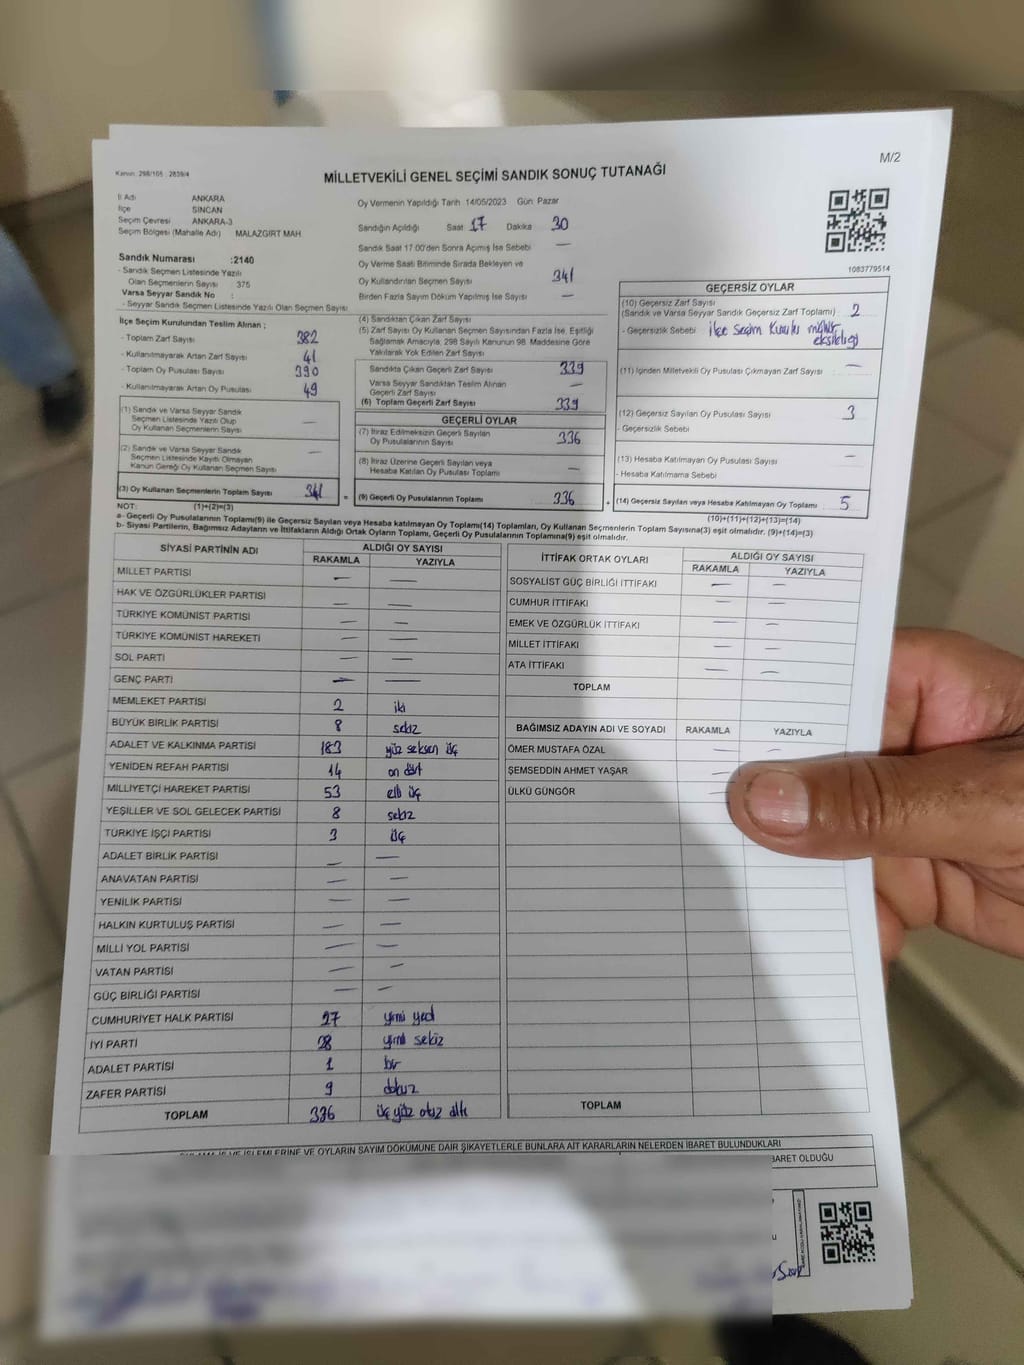 M/2
Kanun : 298/105 : 2839/4
MİLLETVEKİLİ GENEL SEÇİMİ SANDIK SONUÇ TUTANAĞI
İl Adı ANKARA
İlçe SİNCAN
Seçim Çevresi ANKARA-3
Seçim Bölgesi (Mahalle Adı) MALAZGIRT MAH.
Sandık Numarası :2140
- Sandık Seçmen Listesinde Yazılı
Olan Seçmenlerin Sayısı 375
Varsa Seyyar Sandık No :
- Seyyar Sandık Seçmen Listesinde Yazılı Olan Seçmen Sayısı
İlçe Seçim Kurulundan Teslim Alınan ;
- Toplam Zarf Sayısı 382
- Kullanılmayarak Artan Zarf Sayısı 41
- Toplam Oy Pusulası Sayısı 390
- Kullanılmayarak Artan Oy Pusulası 49
(1) Sandık ve Varsa Seyyar Sandık
Seçmen Listesinde Yazılı Olup
Oy Kullanan Seçmenlerin Sayısı —
(2) Sandık ve Varsa Seyyar Sandık
Seçmen Listesinde Kayıtlı Olmayan
Kanun Gereği Oy Kullanan Seçmen Sayısı —
(3) Oy Kullanan Seçmenlerin Toplam Sayısı 341
Oy Vermenin Yapıldığı Tarih 14/05/2023 Gün: Pazar
Sandığın Açıldığı Saat 17 Dakika 30
Sandık Saat 17.00'den Sonra Açımış İse Sebebi —
Oy Verme Saati Bitiminde Sırada Bekleyen ve
Oy Kullandırılan Seçmen Sayısı 341
Birden Fazla Sayım Döküm Yapılmış İse Sayısı —
(4) Sandıktan Çıkan Zarf Sayısı
(5) Zarf Sayısı Oy Kullanan Seçmen Sayısından Fazla İse, Eşitliği
Sağlamak Amacıyla, 298 Sayılı Kanunun 98. Maddesine Göre
Yakılarak Yok Edilen Zarf Sayısı
Sandıkta Çıkan Geçerli Zarf Sayısı 339
Varsa Seyyar Sandıktan Teslim Alınan
Geçerli Zarf Sayısı —
(6) Toplam Geçerli Zarf Sayısı 339
GEÇERLİ OYLAR
(7) İtiraz Edilmeksizin Geçerli Sayılan
Oy Pusulalarının Sayısı 336
(8) İtiraz Üzerine Geçerli Sayılan veya
Hesaba Katılan Oy Pusulası Toplamı —
= (9) Geçerli Oy Pusulalarının Toplamı 336
1083779514
GEÇERSİZ OYLAR
(10) Geçersiz Zarf Sayısı
(Sandık ve Varsa Seyyar Sandık Geçersiz Zarf Toplamı) 2
- Geçersizlik Sebebi : ilçe Seçim Kurulu mühür
eksikliği
(11) İçinden Milletvekili Oy Pusulası Çıkmayan Zarf Sayısı —
(12) Geçersiz Sayılan Oy Pusulası Sayısı 3
- Geçersizlik Sebebi :
(13) Hesaba Katılmayan Oy Pusulası Sayısı —
- Hesaba Katılmama Sebebi
+ (14) Geçersiz Sayılan veya Hesaba Katılmayan Oy Toplamı 5
NOT: (1)+(2)=(3) (10)+(11)+(12)+(13)=(14)
a- Geçerli Oy Pusulalarının Toplamı(9) ile Geçersiz Sayılan veya Hesaba katılmayan Oy Toplamı(14) Toplamları, Oy Kullanan Seçmenlerin Toplam Sayısına(3) eşit olmalıdır. (9)+(14)=(3)
b- Siyasi Partilerin, Bağımsız Adayların ve İttifakların Aldığı Ortak Oyların Toplamı, Geçerli Oy Pusulalarının Toplamına(9) eşit olmalıdır.
SİYASİ PARTİNİN ADI ALDIĞI OY SAYISI
RAKAMLA YAZIYLA
MİLLET PARTİSİ — —
HAK VE ÖZGÜRLÜKLER PARTİSİ — —
TÜRKİYE KOMÜNİST PARTİSİ — —
TÜRKİYE KOMÜNİST HAREKETİ — —
SOL PARTİ — —
GENÇ PARTİ — —
MEMLEKET PARTİSİ 2 iki
BÜYÜK BİRLİK PARTİSİ 8 sekiz
ADALET VE KALKINMA PARTİSİ 183 yüz seksen üç
YENİDEN REFAH PARTİSİ 14 on dört
MİLLİYETÇİ HAREKET PARTİSİ 53 elli üç
YEŞİLLER VE SOL GELECEK PARTİSİ 8 sekiz
TÜRKİYE İŞÇİ PARTİSİ 3 üç
ADALET BİRLİK PARTİSİ — —
ANAVATAN PARTİSİ — —
YENİLİK PARTİSİ — —
HALKIN KURTULUŞ PARTİSİ — —
MİLLİ YOL PARTİSİ — —
VATAN PARTİSİ — —
GÜÇ BİRLİĞİ PARTİSİ — —
CUMHURİYET HALK PARTİSİ 27 yirmi yedi
İYİ PARTİ 28 yirmi sekiz
ADALET PARTİSİ 1 bir
ZAFER PARTİSİ 9 dokuz
TOPLAM 336 üç yüz otuz altı
İTTİFAK ORTAK OYLARI ALDIĞI OY SAYISI
RAKAMLA YAZIYLA
SOSYALİST GÜÇ BİRLİĞİ İTTİFAKI — —
CUMHUR İTTİFAKI — —
EMEK VE ÖZGÜRLÜK İTTİFAKI — —
MİLLET İTTİFAKI — —
ATA İTTİFAKI — —
TOPLAM
BAĞIMSIZ ADAYIN ADI VE SOYADI RAKAMLA YAZIYLA
ÖMER MUSTAFA ÖZAL — —
ŞEMSEDDİN AHMET YAŞAR —
ÜLKÜ GÜNGÖR —
TOPLAM
VE OYLARIN SAYIM DÖKÜMÜNE DAİR ŞİKAYETLERLE BUNLARA AİT KARARLARIN NELERDEN İBARET BULUNDUKLARI
BARET OLDUĞU